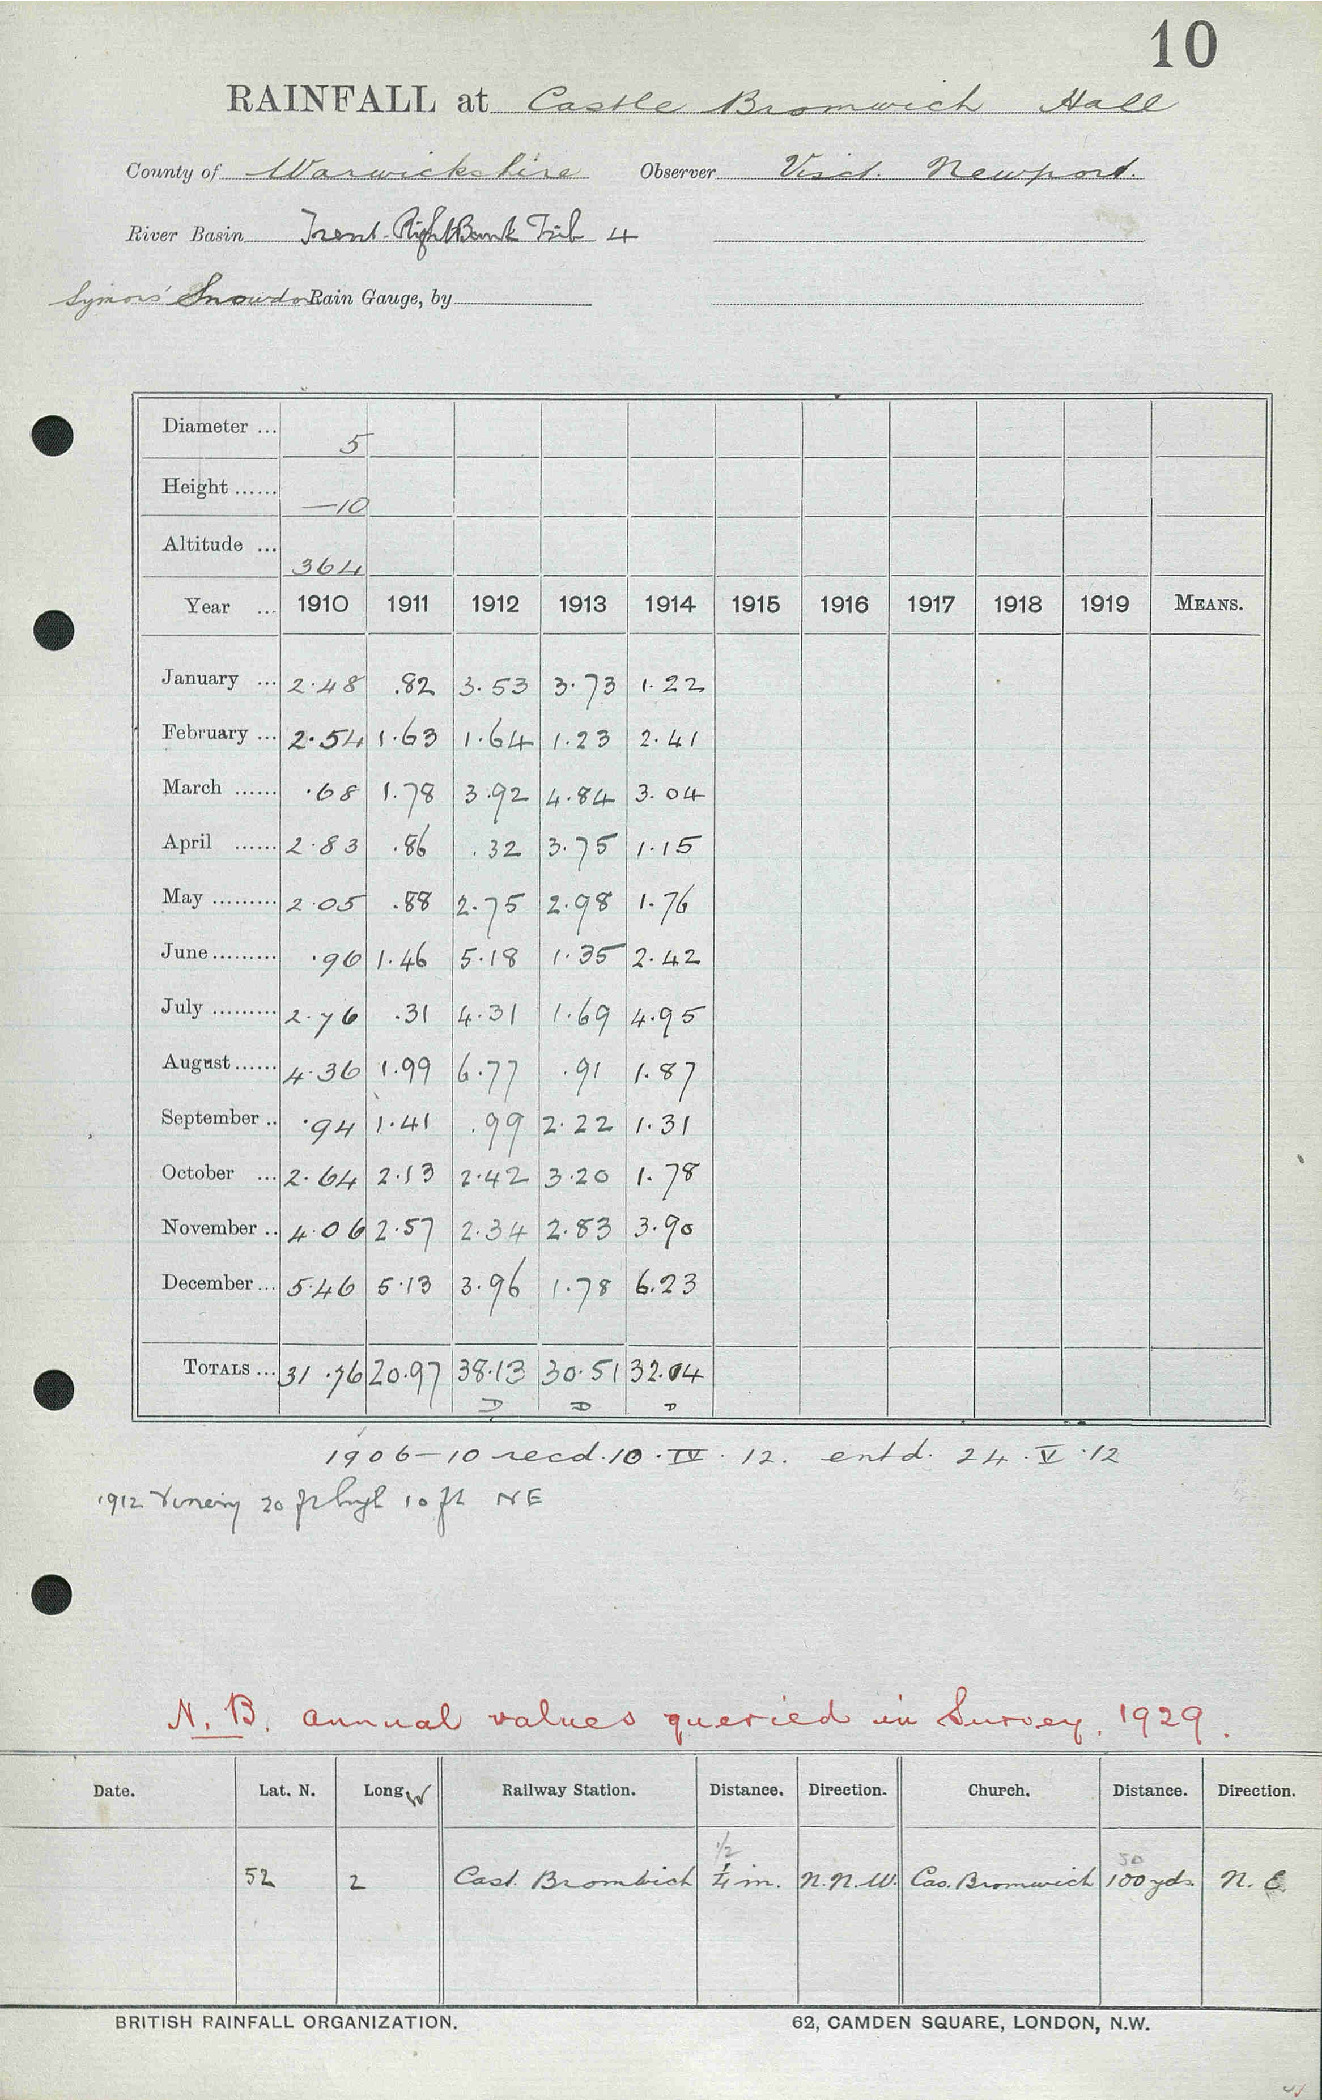 10
RAINFALL at Castle Bromwich Hall
County of Warwickshire Observer Visct. Newport.
River Basin Trent. Right Bank Trib 4
Symons' Snowdon Rain Gauge, by
Diameter ... 5
Height ...... —10
Altitude ... 364
Year ... 1910 1911 1912 1913 1914 1915 1916 1917 1918 1919 MEANS.
January ... 2.48 .82 3.53 3.73 1.22
February ... 2.54 1.63 1.64 1.23 2.41
March ...... .68 1.78 3.92 4.84 3.04
April ...... 2.83 .86 .32 3.75 1.15
May ......... 2.05 .88 2.75 2.98 1.76
June ......... .96 1.46 5.18 1.35 2.42
July ......... 2.76 .31 4.31 1.69 4.95
August ...... 4.36 1.99 6.77 .91 1.87
September .. .94 1.41 .99 2.22 1.31
October ... 2.64 2.13 2.42 3.20 1.78
November .. 4.06 2.57 2.34 2.83 3.90
December ... 5.46 5.13 3.96 1.78 6.23
TOTALS ... 31.76 20.97 38.13 30.51 32.04
D D D
1906–10 recd. 10.IV.12. entd. 24.V.12
1912 Vinery 20 ft high 10 ft NE
N.B. annual values queried in Survey. 1929.
Date. Lat. N. Long. W Railway Station. Distance. Direction. Church. Distance. Direction.
1/2 50
52 2 Cast. Bromwich 1/4 m. N.N.W. Cas. Bromwich 100 yds. N. E.
BRITISH RAINFALL ORGANIZATION. 62, CAMDEN SQUARE, LONDON, N.W.